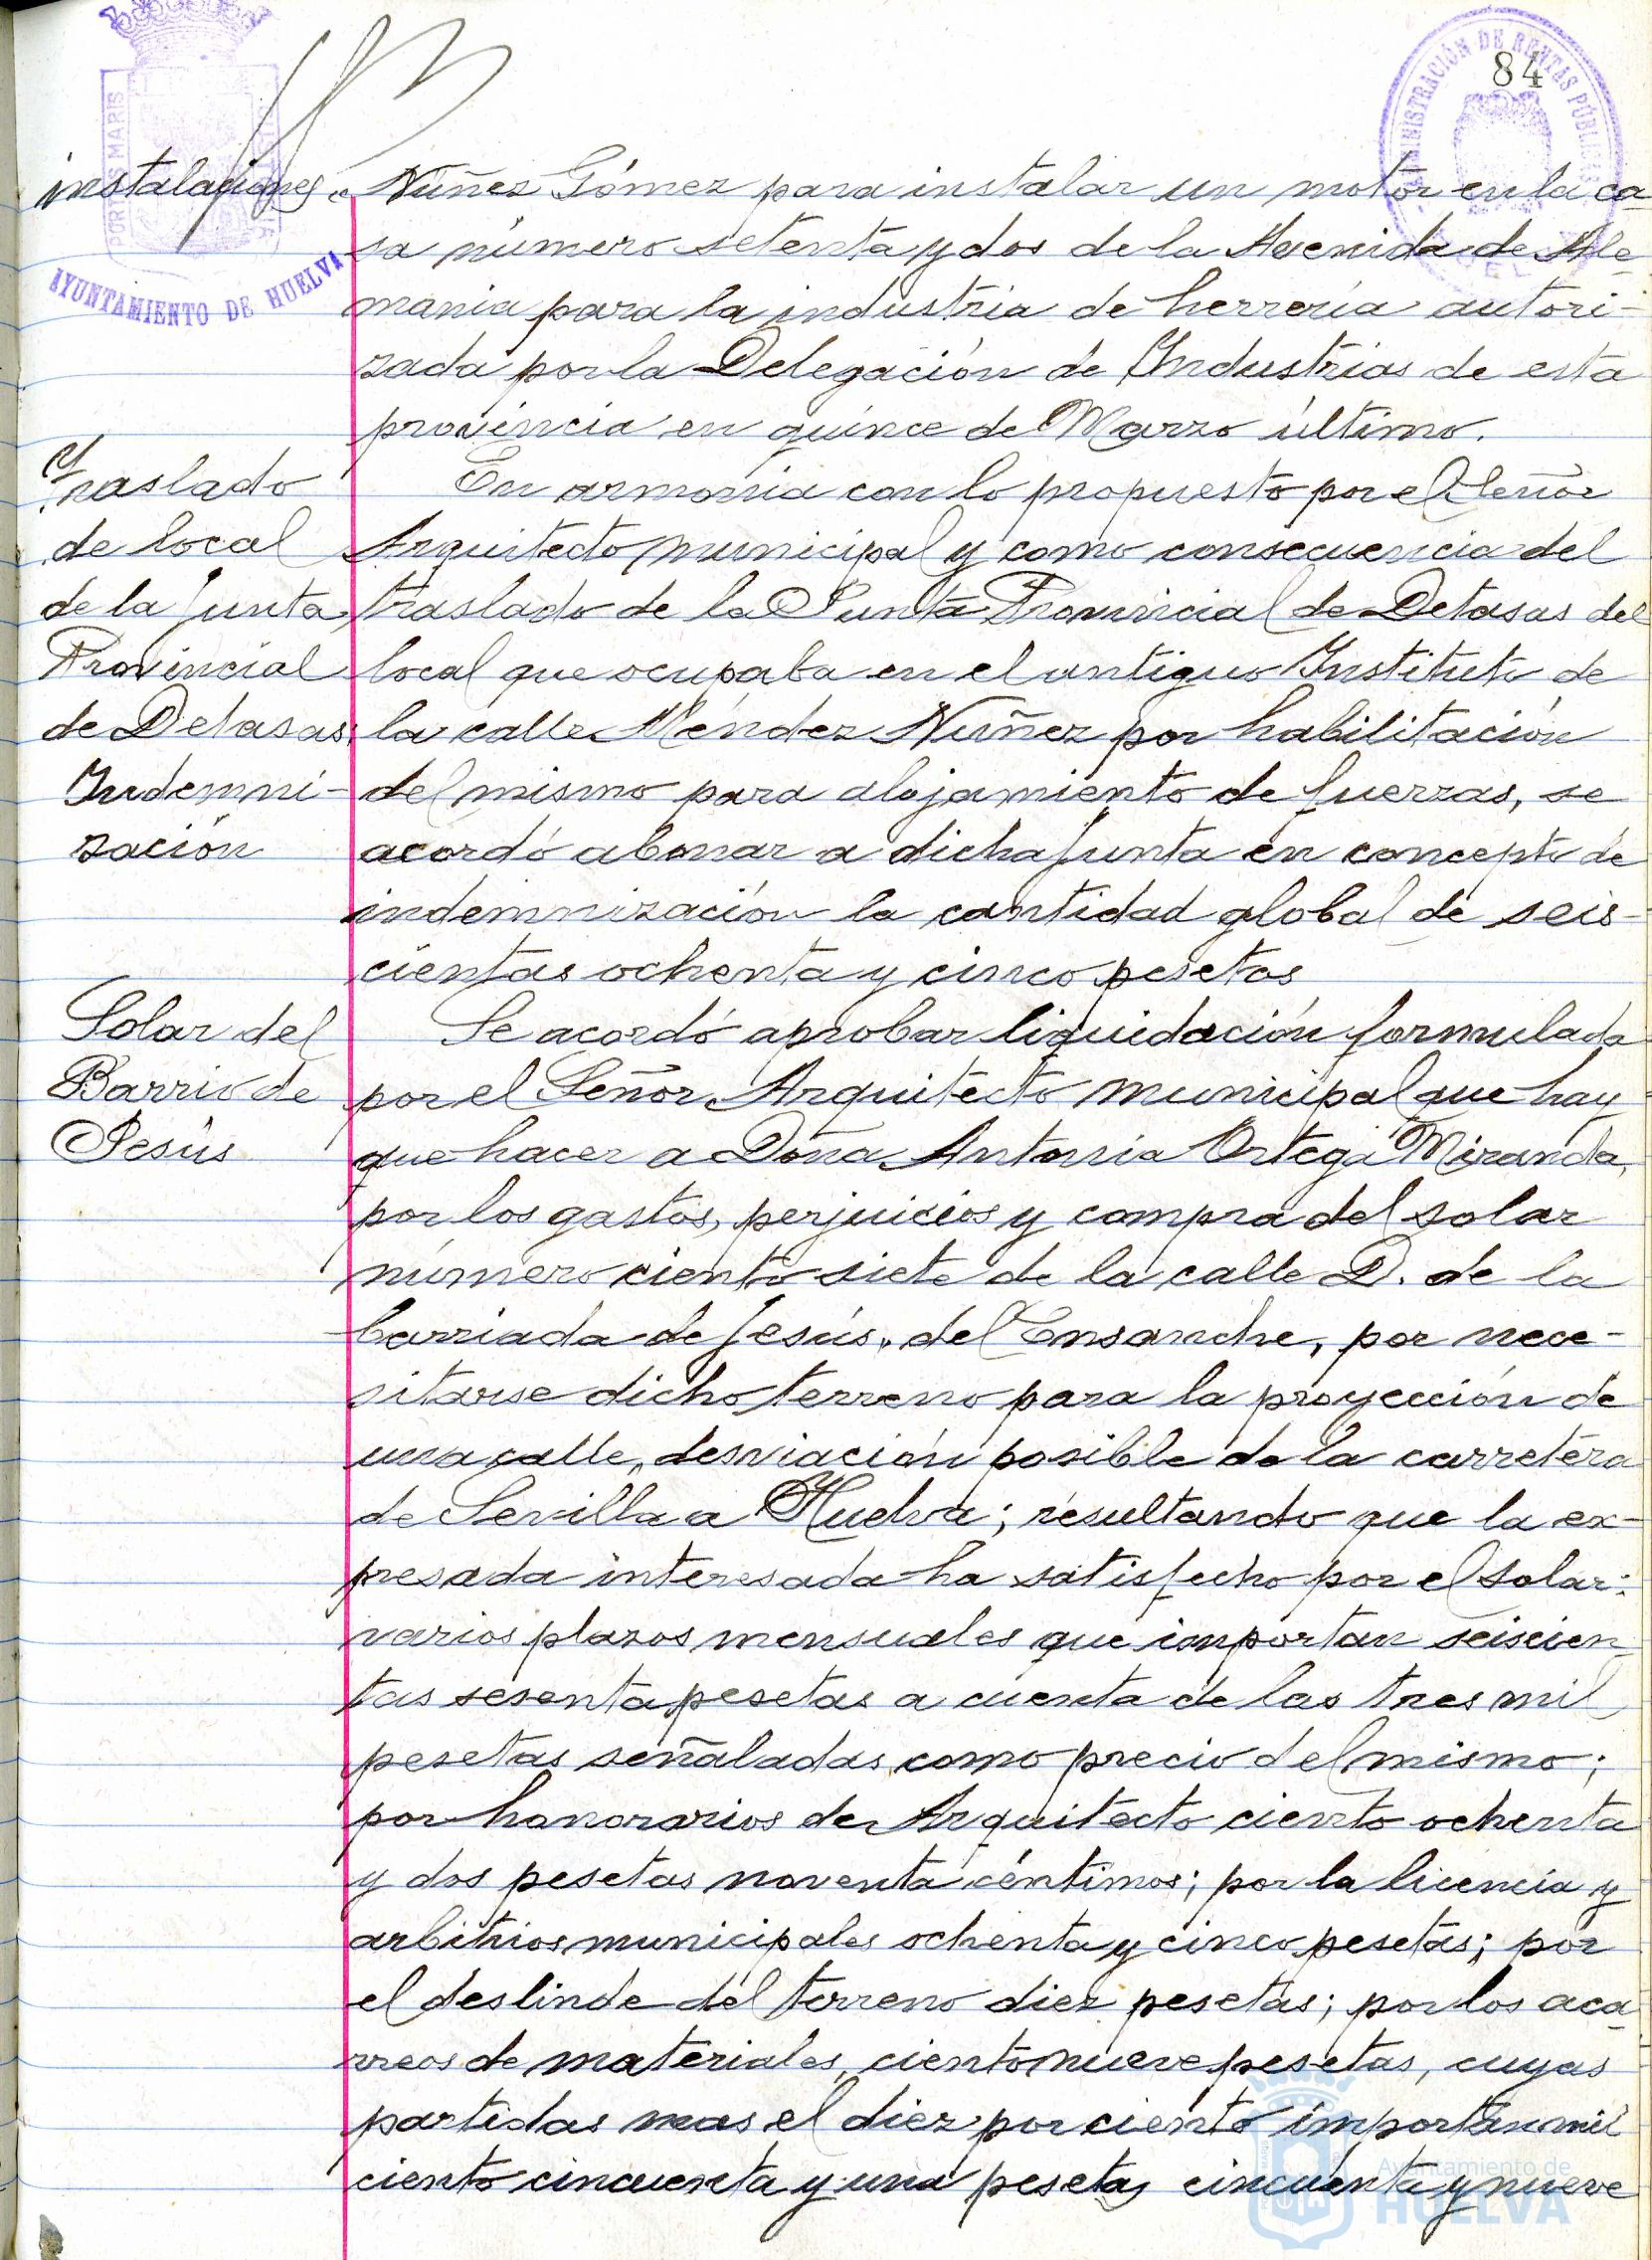 84
ADMINISTRACIÓN DE RENTAS PÚBLICAS
PORTUS MARIS
AYUNTAMIENTO DE HUELVA
instalaciones
Núñez Gómez para instalar un motor en la ca-
sa número setenta y dos de la Avenida de Ale-
mania para la industria de herrería autori-
zada por la Delegación de Industrias de esta
provincia en quince de Marzo último.
Traslado
de local
de la Junta
Provincial
de Detasas.
Indemni-
zación
En armonía con lo propuesto por el Señor
Arquitecto municipal y como consecuencia del
traslado de la Junta Provincial de Detasas del
local que ocupaba en el antiguo Instituto de
la calle Méndez Núñez por habilitación
del mismo para alojamiento de fuerzas, se
acordó abonar a dicha Junta en concepto de
indemnización la cantidad global de seis-
cientas ochenta y cinco pesetas
Solar del
Barrio de
Jesús
Se acordó aprobar liquidación formulada
por el Señor Arquitecto municipal que hay
que hacer a Doña Antonia Ortega Miranda,
por los gastos, perjuicios y compra del solar
número ciento siete de la calle D. de la
barriada de Jesús, del Ensanche, por nece-
sitarse dicho terreno para la proyección de
una calle, desviación posible de la carretera
de Sevilla a Huelva; resultando que la ex-
presada interesada ha satisfecho por el solar:
varios plazos mensuales que importan seiscien
tas sesenta pesetas a cuenta de las tres mil
pesetas señaladas como precio del mismo;
por honorarios de Arquitecto ciento ochenta
y dos pesetas noventa céntimos; por la licencia y
arbitrios municipales ochenta y cinco pesetas; por
el deslinde del terreno diez pesetas; por los aca-
rreos de materiales, ciento nueve pesetas, cuyas
partidas mas el diez por ciento importan mil
ciento cincuenta y una pesetas cincuenta y nueve
Ayuntamiento de
HUELVA